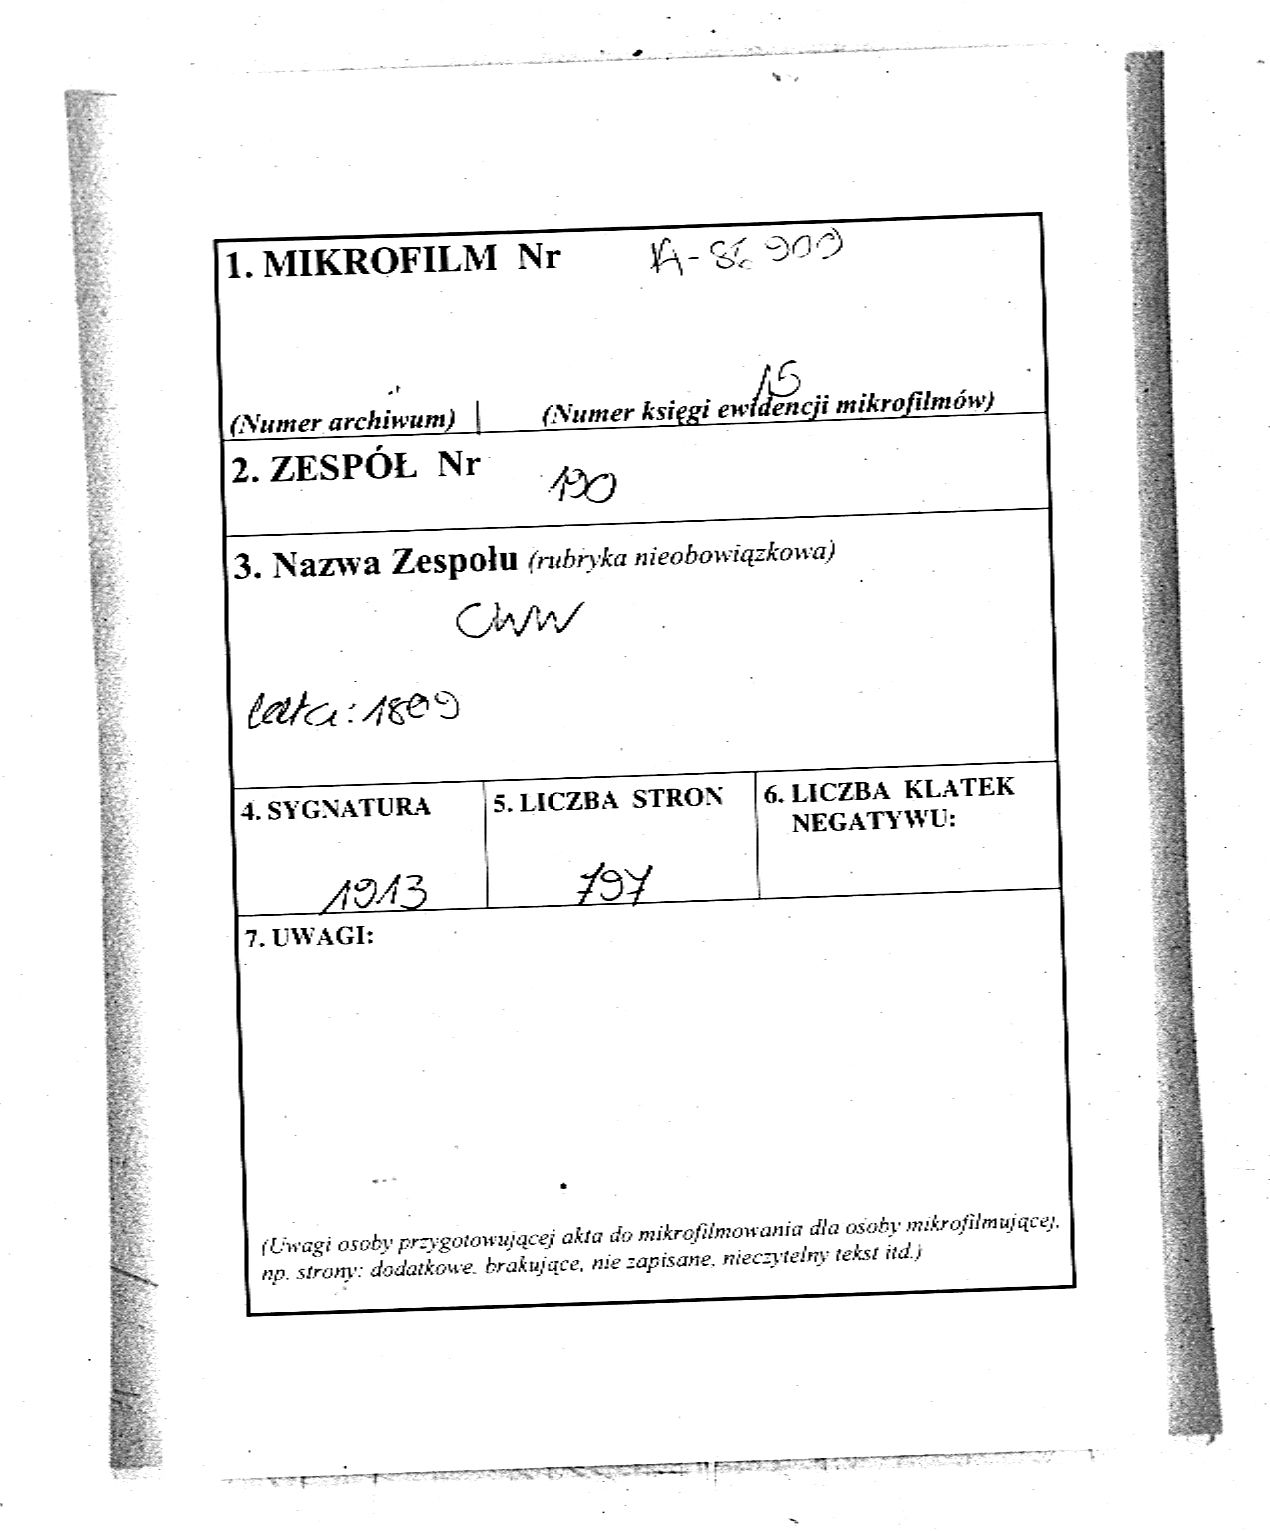 1. MIKROFILM Nr
15
(Numer archiwum) | (Numer księgi ewidencji mikrofilmów)
2. ZESPÓŁ Nr 190
3. Nazwa Zespołu (rubryka nieobowiązkowa)
CWW
lata: 1809
4. SYGNATURA 5. LICZBA STRON 6. LICZBA KLATEK
NEGATYWU:
1913 797
7. UWAGI:
(Uwagi osoby przygotowującej akta do mikrofilmowania dla osoby mikrofilmującej,
np. strony: dodatkowe, brakujące, nie zapisane, nieczytelny tekst itd.)